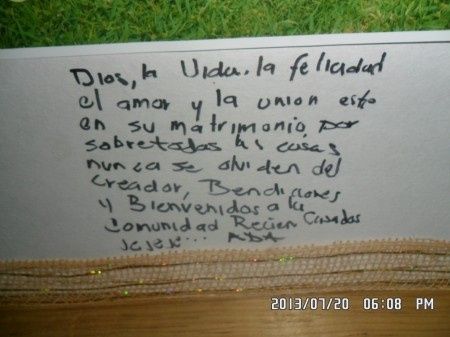 Dios, la Vida, la felicidad
el amor y la union esto
en su matrimonio, por
sobretodas las cosas
nunca se olviden del
Creador, Bendiciones
y Bienvenidos a la
Comunidad Recien Casados
jejeje... ADA
2013/07/20 06:08 PM